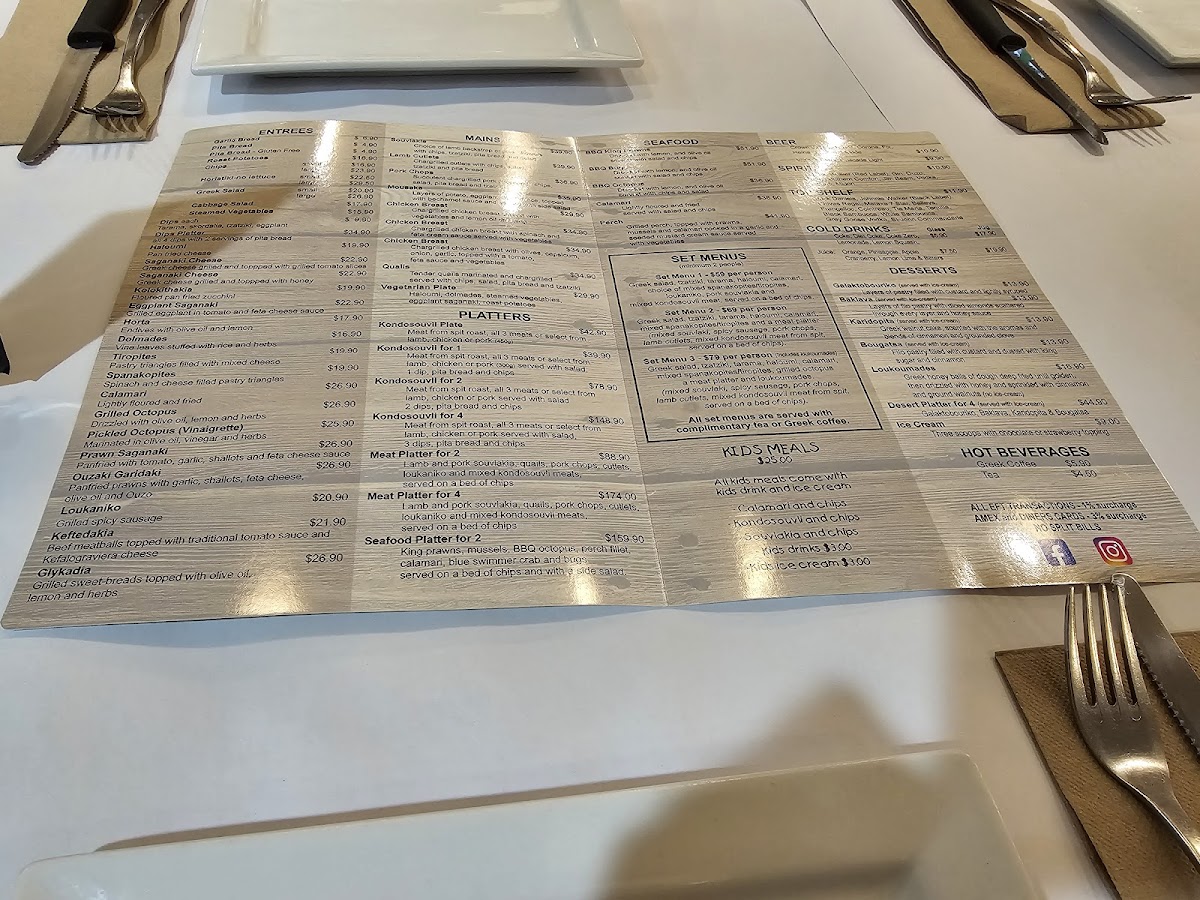 ENTREES
Garlic Bread $ 6.90
Pita Bread $ 4.90
Pita Bread - Gluten Free $ 4.90
Roast Potatoes $16.90
Chips
Horiatiki no lettuce
Greek Salad small $20.90
large $26.90
Cabbage Salad $17.90
Steamed Vegetables $15.90
Dips each $ 9.90
Tarama, skordalia, tzatziki, eggplant
Dips Platter $34.90
all 4 dips with 2 servings of pita bread
Haloumi $19.90
Pan fried cheese
Saganaki Cheese $22.90
Greek cheese grilled and toppped with grilled tomato slices
Saganaki Cheese $22.90
Greek cheese grilled and topped with honey
Kolokithakia $19.90
Floured pan fried zucchini
Eggplant Saganaki $22.90
Grilled eggplant in tomato and feta cheese sauce
Horta $17.90
Endives with olive oil and lemon
Dolmades $16.90
Vine leaves stuffed with rice and herbs
Tiropites $19.90
Pastry triangles filled with mixed cheese
Spanakopites $19.90
Spinach and cheese filled pastry triangles
Calamari $26.90
Lightly floured and fried
Grilled Octopus $26.90
Drizzled with olive oil, lemon and herbs
Pickled Octopus (Vinaigrette) $25.90
Marinated in olive oil, vinegar and herbs
Prawn Saganaki $26.90
Panfried with tomato, garlic, shallots and feta cheese sauce
Ouzaki Garidaki $26.90
Panfried prawns with garlic, shallots, feta cheese,
olive oil and Ouzo
Loukaniko $20.90
Grilled spicy sausage
Keftedakia $21.90
Beef meatballs topped with traditional tomato sauce and
Kefalograviera cheese
Glykadia $26.90
Grilled sweet-breads topped with olive oil,
lemon and herbs
MAINS
Souvlakia
Choice of lamb backstrap
with chips, tzatziki, pita bread
Lamb Cutlets $39.90
Chargrilled cutlets with chips
tzatziki and pita bread
Pork Chops $36.90
Succulent chargrilled pork
salad, pita bread and tzatziki
Mousaka
Layers of potato, eggplant
with bechamel sauce
Chicken Breast $29.90
Chargrilled chicken breast with
vegetables and lemon
Chicken Breast $34.90
Chargrilled chicken breast with spinach and
feta cream sauce served with vegetables
Chicken Breast $34.90
Chargrilled chicken breast with olives, capsicum,
onion, garlic, topped with a tomato,
feta sauce and vegetables
Quails $34.90
Tender quails marinated and chargrilled
served with chips, salad, pita bread and tzatziki
Vegetarian Plate $29.90
Haloumi, dolmades, steamed vegetables,
eggplant saganaki, roast potatoes
PLATTERS
Kondosouvli Plate $42.90
Meat from spit roast, all 3 meats or select from
lamb, chicken or pork (450g)
Kondosouvli for 1 $39.90
Meat from spit roast, all 3 meats or select from
lamb, chicken or pork (300g) served with salad,
1 dip, pita bread and chips
Kondosouvli for 2 $78.90
Meat from spit roast, all 3 meats or select from
lamb, chicken or pork served with salad
2 dips, pita bread and chips
Kondosouvli for 4 $148.90
Meat from spit roast, all 3 meats or select from
lamb, chicken or pork served with salad,
3 dips, pita bread and chips
Meat Platter for 2 $88.90
Lamb and pork souvlakia, quails, pork chops, cutlets,
loukaniko and mixed kondosouvli meats,
served on a bed of chips
Meat Platter for 4 $174.00
Lamb and pork souvlakia, quails, pork chops, cutlets,
loukaniko and mixed kondosouvli meats,
served on a bed of chips
Seafood Platter for 2 $159.90
King prawns, mussels, BBQ octopus, perch fillet,
calamari, blue swimmer crab and bugs,
served on a bed of chips and with a side salad,
SEAFOOD
BBQ King Prawns $51.90
BBQ $51.90
BBQ Octopus
Calamari $38.90
Lightly floured and fried
served with salad and chips
Perch $41.90
Grilled perch, topped with prawns,
mussels and calamari cooked in a garlic and
seeded mustard cream sauce served
with vegetables
SET MENUS
(minimum 2 people)
Set Menu 1 - $59 per person
Greek salad, tzatziki, tarama, haloumi, calamari,
choice of mixed spanakopites/tiropites,
loukaniko, pork souvlakia and
mixed kondosouvli meat, served on a bed of chips
Set Menu 2 - $69 per person
Greek salad, tzatziki, tarama, haloumi, calamari,
mixed spanakopites/tiropites and a meat platter
(mixed souvlaki, spicy sausage, pork chops,
lamb cutlets, mixed kondosouvli meat from spit,
served on a bed of chips)
Set Menu 3 - $79 per person (includes loukoumades)
Greek salad, tzatziki, tarama, haloumi, calamari,
mixed spanakopites/tiropites, grilled octopus
a meat platter and loukoumades
(mixed souvlaki, spicy sausage, pork chops,
lamb cutlets, mixed kondosouvli meat from spit,
served on a bed of chips).
All set menus are served with
complimentary tea or Greek coffee.
KIDS MEALS
$25.00
All kids meals come with
kids drink and ice cream
- Calamari and chips
- Kondosouvli and chips
- Souvlakia and chips
- Kids drinks $3.00
- Kids ice cream $3.00
BEER
SPIRITS
TOP SHELF $11.90
COLD DRINKS Glass
Coke, Diet Coke, Coke Zero,
Lemonade, Lemon Squash,
Juice: Orange, Pineapple, Apple, $7.50
Cranberry, Lemon, Lime & Bitters
DESSERTS
Galaktobouriko (served with ice-cream) $13.90
Layers of filo pastry filled with custard and lightly syruped
Baklava (served with ice-cream) $13.90
Layers of filo pastry with sliced almonds scattered
through every layer and honey sauce
Karidopita (served with ice-cream) $13.90
Greek walnut cake, scented with the aromas and
blends of cinnamon and ground clove
Bougatsa (served with ice-cream) $13.90
Filo pastry filled with custard and dusted with icing
sugar and cinnamon
Loukoumades $16.90
Greek honey balls of dough, deep fried until golden,
then drizzled with honey and sprinkled with cinnamon
and ground walnuts (no ice-cream)
Desert Platter for 4 (served with ice-cream) $44.90
Galaktoboriko, Baklava, Kariopita & Bougatsa
Ice Cream $9.00
Three scoops with chocolate or strawberry topping
HOT BEVERAGES
Greek Coffee $5.90
Tea $4.60
ALL EFT TRANSACTIONS - 1% surcharge
AMEX and DINERS CARDS - 3% surcharge
NO SPLIT BILLS